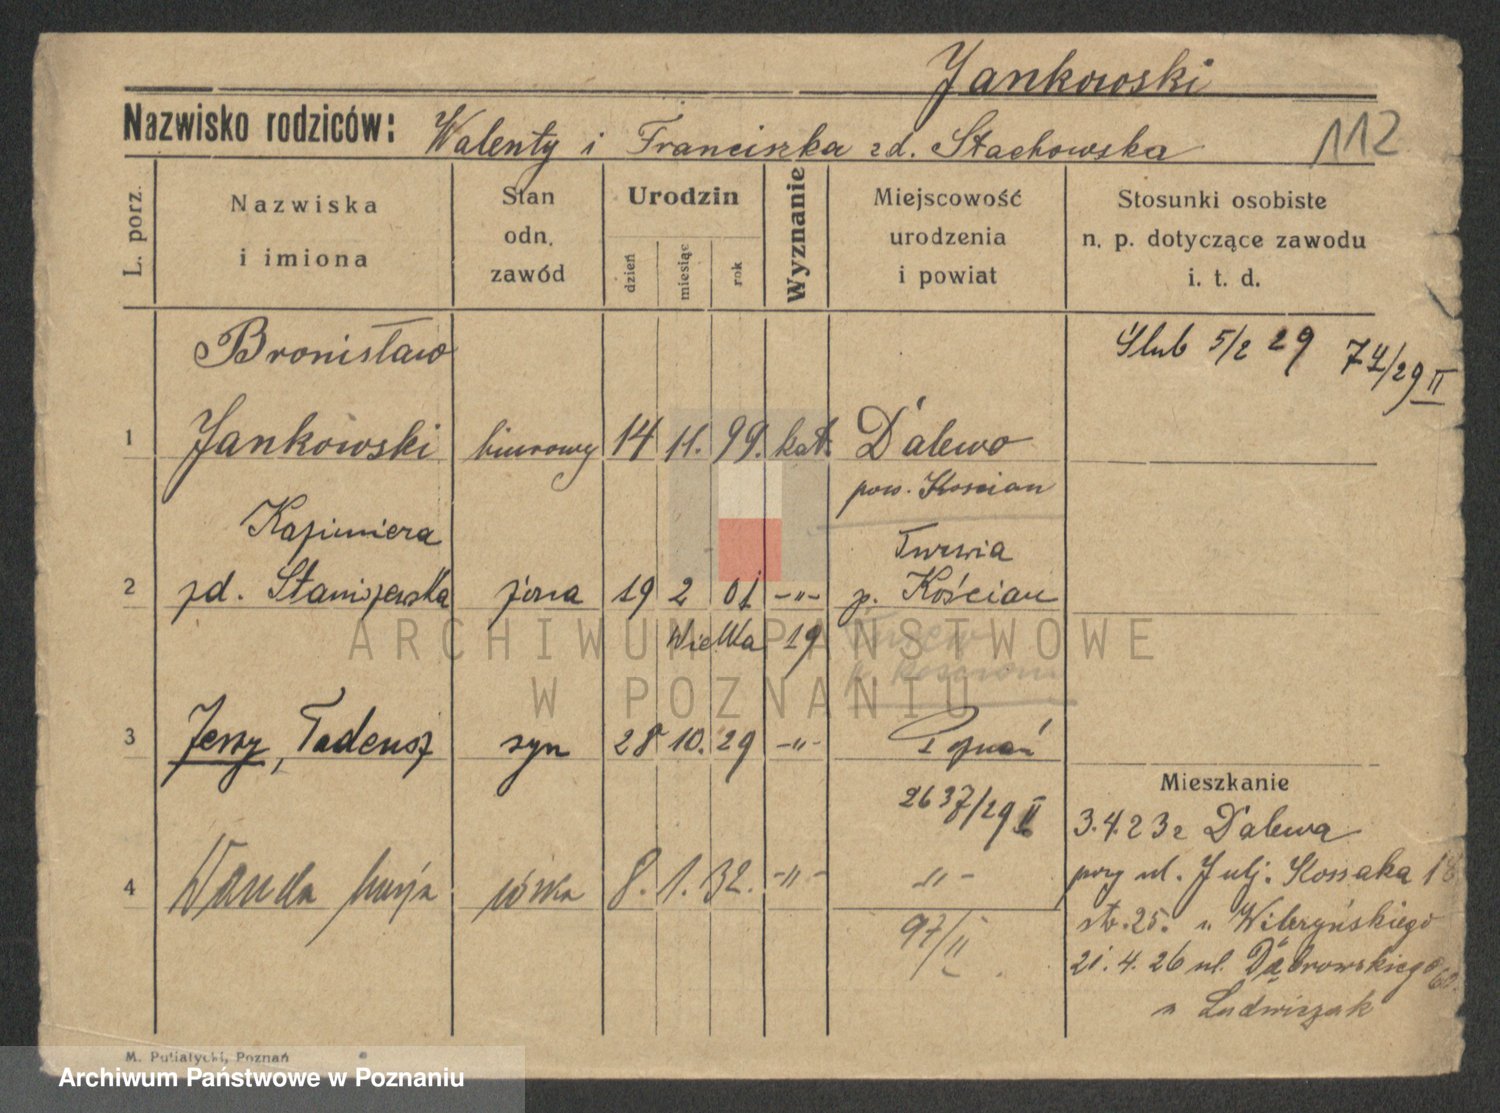 Jankowski
Nazwisko rodziców: Walenty i Franciszka zd. Stachowska 112
L. porz.
Nazwiska
i imiona
Stan
odn.
zawód
Urodzin
dzień
miesiąc
rok
Wyznanie
Miejscowość
urodzenia
i powiat
Stosunki osobiste
n. p. dotyczące zawodu
i. t. d.
Bronisław
Ślub 5/2 29 74/29 II
1 Jankowski biurowy 14 11. 99. kat. Dalewo
pow. Kościan
Kazimiera
Turwia
2 zd. Staniszewska żona 19 2 01 -"- p. Kościan
Wielka 19
p. Kościan
3 Jerzy, Tadeusz syn 28 10. 29 -"- Poznań
2637/29 II
Mieszkanie
3.4.23 z Dalewa
4 Wanda córka 8. 1. 32. -"- -"-
97/II
przy ul. Julj. Kossaka
str. 25. u Wilczyńskiego
21.4.26 ul. Dąbrowskiego
u Ludwiczak
M. Putiatycki, Poznań
ARCHIWUM PAŃSTWOWE
W POZNANIU
Archiwum Państwowe w Poznaniu